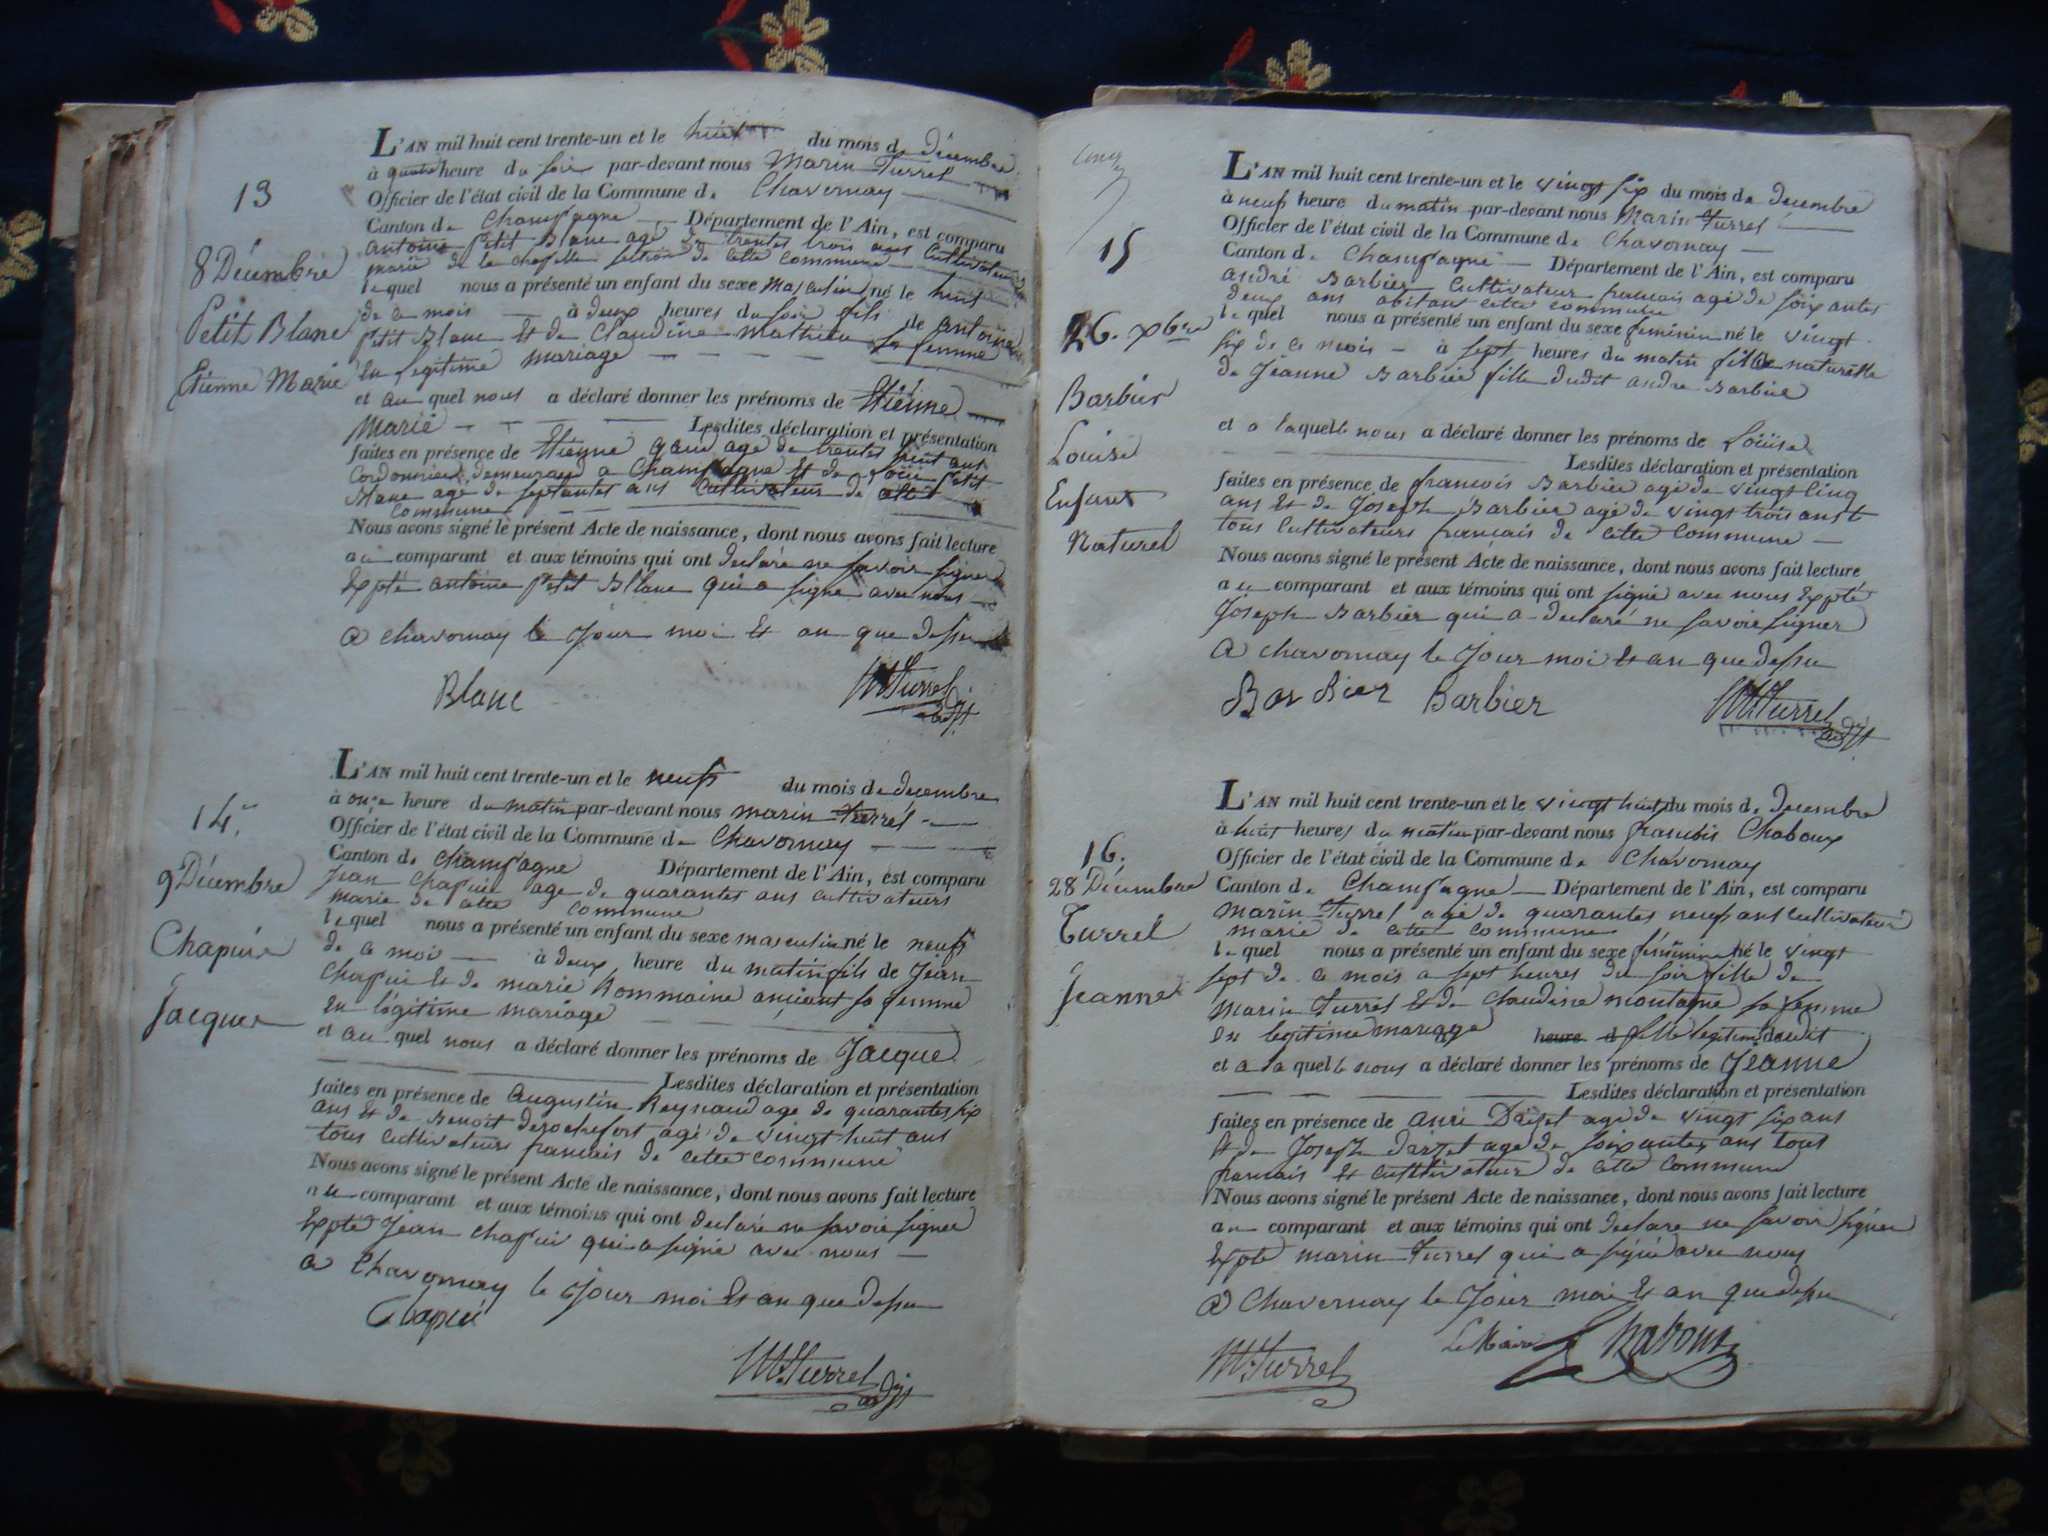 13
8 Décembre
Petit Blanc
Etienne Marie
L'AN mil huit cent trente-un et le huit du mois de Décembre
à quatre heure du soir par-devant nous Marin Turrel
Officier de l'état civil de la Commune de Chavornay
Canton de Champagne Département de l'Ain, est comparu
antoine Petit Blanc agé de trentes trois ans Cultivateur
marié de la chapelle section de cette commune
lequel nous a présenté un enfant du sexe masculin né le huit
de ce mois à deux heures du soir fils de antoine
petit Blanc et de Claudine Mathieu sa femme
en legitime mariage
et au quel nous a déclaré donner les prénoms de Etiènne
Marie Lesdites déclaration et présentation
faites en présence de Etienne agé de trentes huit ans
Cordonnier demeurand a Champagne et de Loüis Petit
Blanc agé de septantes ans Cultivateur de
commune
Nous avons signé le présent Acte de naissance, dont nous avons fait lecture
au comparant et aux témoins qui ont declaré ne savoir signer
Expté antoine Petit Blanc qui a signé avec nous
a chavornay le Jour moi et an que dessu
Blanc MTurrel adjt
14
9 Décembre
Chapuis
Jacques
L'AN mil huit cent trente-un et le neuf du mois de decembre
à onze heure du matin par-devant nous marin turrel
Officier de l'état civil de la Commune de Chavornay
Canton de Champagne Département de l'Ain, est comparu
Jean Chapuis age de quarantes ans cultivateurs
marie de cette commune
lequel nous a présenté un enfant du sexe masculin né le neuf
de ce moi à deux heure du matin fils de Jean
Chapuis et de marie Rommaine ancient sa femme
en légitime mariage
et au quel nous a déclaré donner les prénoms de Jacque
Lesdites déclaration et présentation
faites en présence de augustin Reynaud age de quarantes six
ans et de Benoit derochefort agé de vingt huit ans
tous cultivateurs francais de cette commune
Nous avons signé le présent Acte de naissance, dont nous avons fait lecture
au comparant et aux témoins qui ont declaré ne savoir signer
Expté Jean Chapuis qui a signé avec nous
a Chavornay le Jour moi et an que dessu
Chapuis
MTurrel adjt
15
26. Xbre
Barbier
Louise
Enfant
Naturel
L'AN mil huit cent trente-un et le vingt six du mois de decembre
à neuf heure du matin par-devant nous Marin turrel
Officier de l'état civil de la Commune de Chavornay
Canton de Champagne Département de l'Ain, est comparu
andré Barbier Cultivateur francais agé de soixantes
deux ans abitant cette commune
lequel nous a présenté un enfant du sexe feminin né le vingt
six de ce mois à sept heures du matin fille naturelle
de Jeanne Barbier fille dudit andre Barbier
et a laquelle nous a déclaré donner les prénoms de Loüise
Lesdites déclaration et présentation
faites en présence de francois Barbier agé de vingt cinq
ans et de Joseph Barbier agé de vingt trois ans
tous cultivateurs français de cette commune
Nous avons signé le présent Acte de naissance, dont nous avons fait lecture
au comparant et aux témoins qui ont signé avec nous Expté
Joseph Barbier qui a declaré ne savoir signer
a chavornay le Jour moi et an que dessu
Barbier Barbier MTurrel adjt
16.
28 Décembre
Turrel
Jeanne
L'AN mil huit cent trente-un et le vingt huit du mois de Decembre
à huit heures du matin par-devant nous francois Chaboux
Officier de l'état civil de la Commune de Chavornay
Canton de Champagne Département de l'Ain, est comparu
marin Turrel agé de quarantes neuf ans cultivateur
marie de cette commune
lequel nous a présenté un enfant du sexe féminine né le vingt
sept de ce mois a sept heures du soir fille de
Marin Turrel et de Claudine montagne sa femme
en legitime mariage heure d fille legitime dudit
et a la quelle nous a déclaré donner les prénoms de Jeanne
Lesdites déclaration et présentation
faites en présence de agé de vingt six ans
et de Joseph agé de soixantes ans tous
francais et cultivateur de cette commune
Nous avons signé le présent Acte de naissance, dont nous avons fait lecture
au comparant et aux témoins qui ont declare ne savoir signer
Expté marin Turrel qui a signé avec nous
a Chavornay le Jour moi et an que dessu
MTurrel Le Maire Chaboux